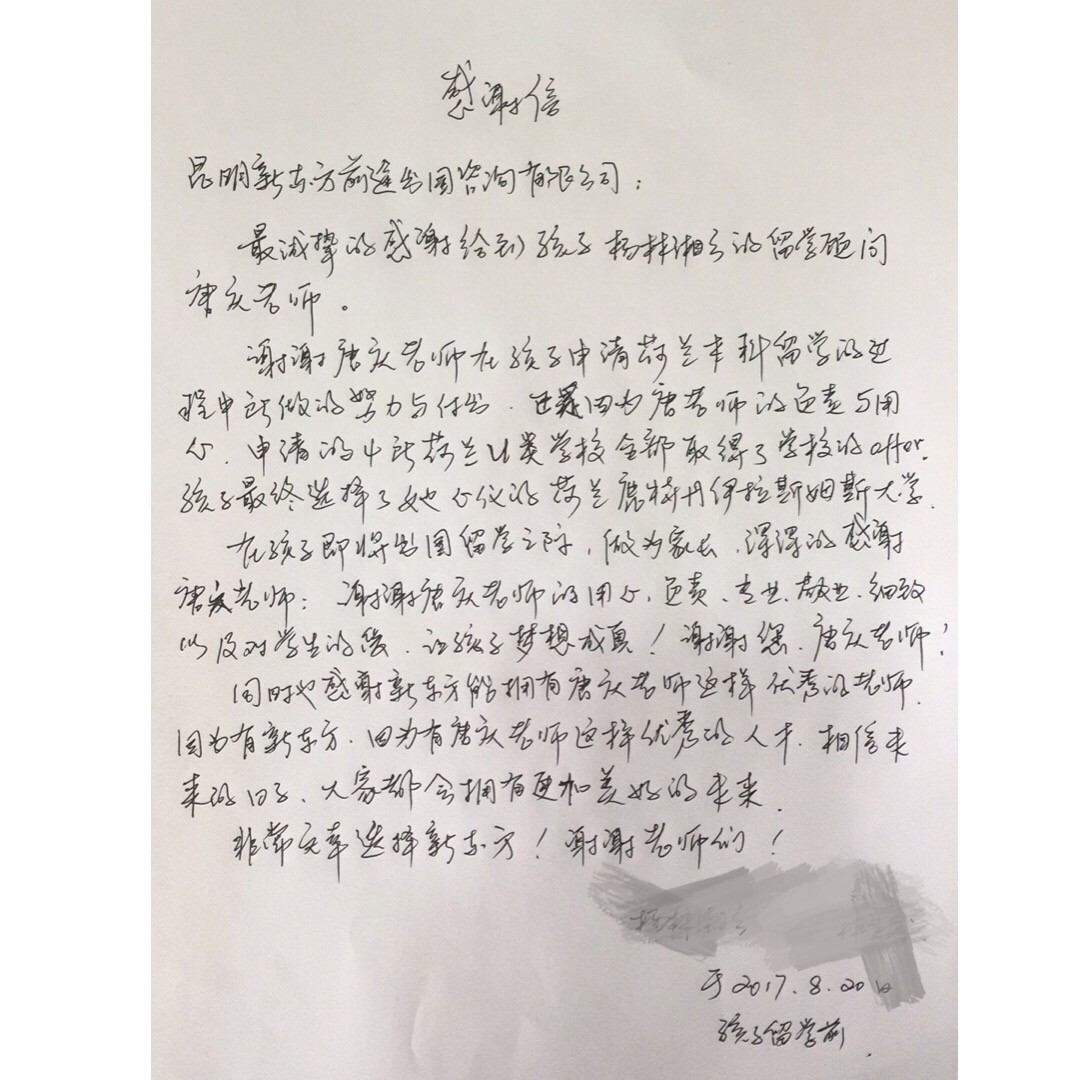 感谢信
昆明新东方前途出国咨询有限公司：
最诚挚的感谢给到孩子杨林湘云的留学顾问
唐庆老师。
谢谢唐庆老师在孩子申请荷兰本科留学的过
程中所做的努力与付出，正是因为唐老师的负责与用
心，申请的4所荷兰U类学校全部取得了学校的offer。
孩子最终选择了她心仪的荷兰鹿特丹伊拉斯姆斯大学。
在孩子即将出国留学之际，做为家长，深深的感谢
唐庆老师：谢谢唐庆老师的用心、负责、专业、敬业、细致
以及对学生的，让孩子梦想成真！谢谢您，唐庆老师！
同时也感谢新东方能拥有唐庆老师这样优秀的老师。
因为有新东方，因为有唐庆老师这样优秀的人才，相信未
来的日子，大家都会拥有更加美好的未来。
非常庆幸选择新东方！谢谢老师们！
于2017.8.20日
孩子留学前